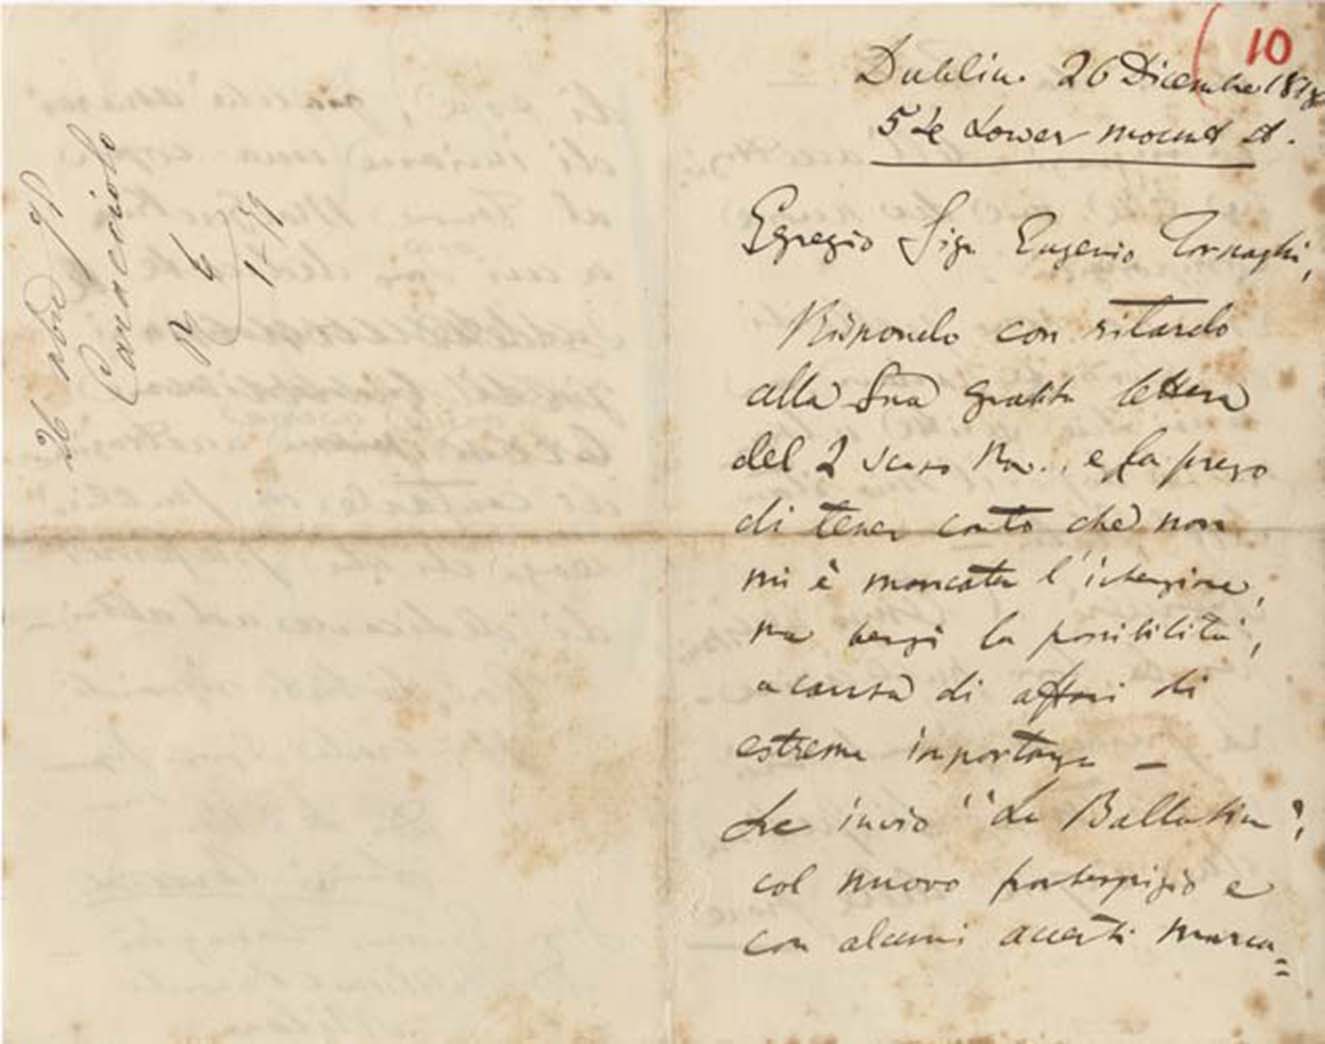 10
Dublin. 26 Dicembre 18
Lower mount St.
Egregio Sigr Eugenio Tornaghi,
Rispondo con ritardo
alla Sua gradita lettera
del 2 scorso Nov., e La prego
di tener conto che non
mi è mancata l'intenzione,
ma bensì la possibilità,
a causa di affari di
estrema importanza —
Le invio "La Ballatina",
col nuovo frontespizio e
con alcuni accenti marca=
Caracciolo
R 6
1